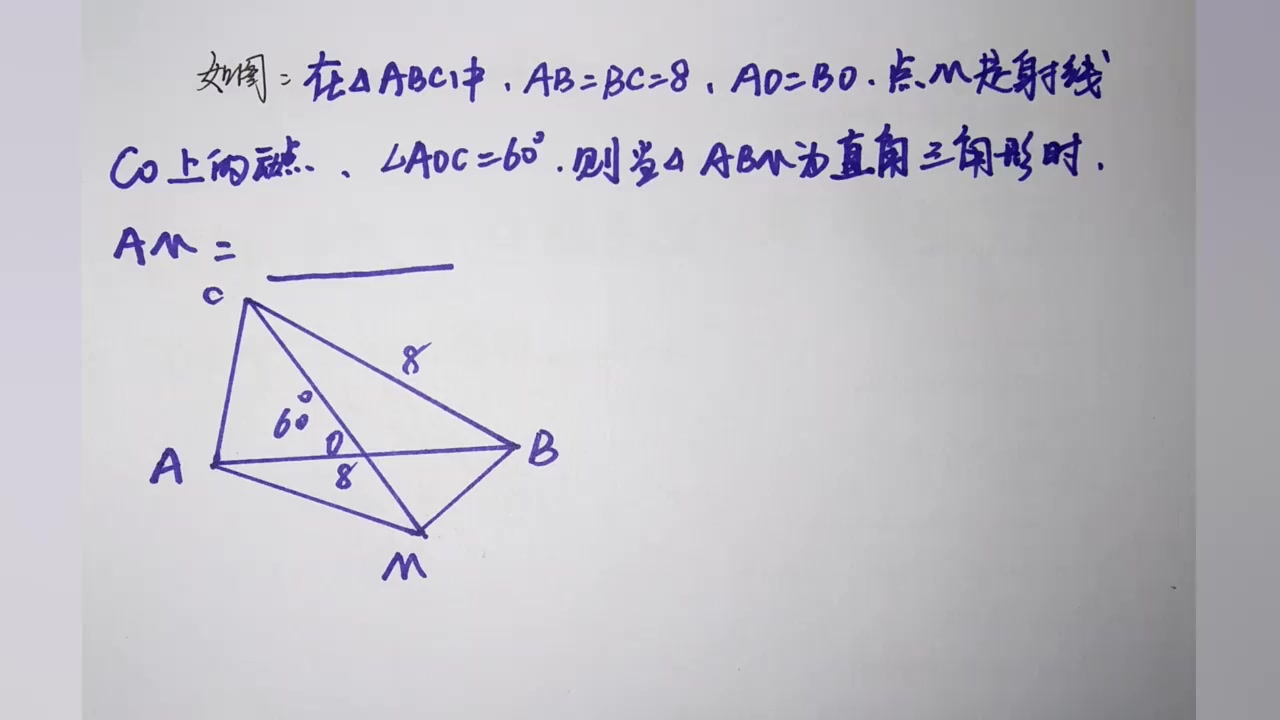 如图：在△ABC中，AB=BC=8，AO=BO．点M是射线
CO上的动点、∠AOC=60°．则当△ABM为直角三角形时．
AM=
C
8
60°
O
A
8
B
M